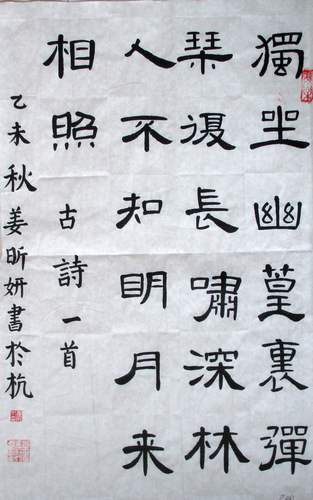 獨坐幽篁裏彈
琹復長嘯深林
人不知明月来
相照
古詩一首
乙未秋姜昕妍書於杭